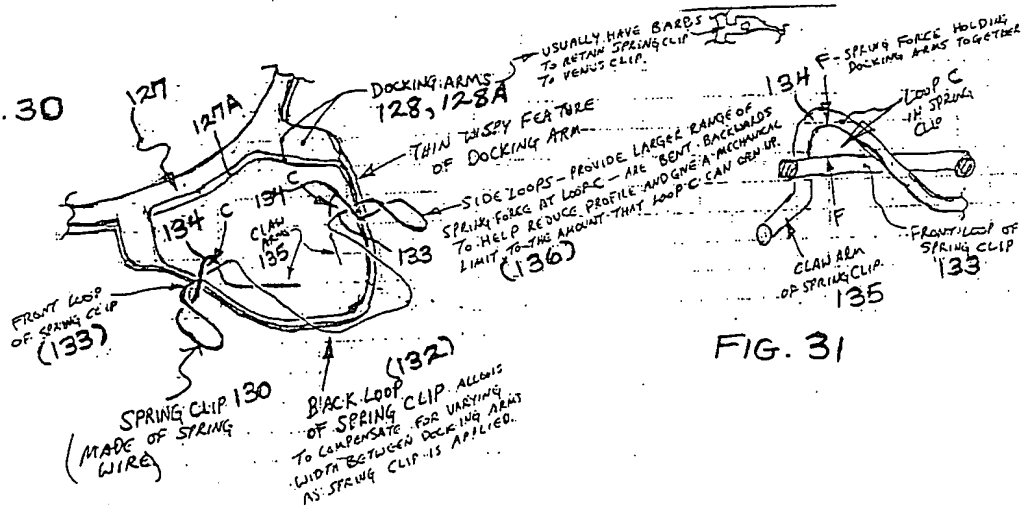 .30
127
127A
DOCKING ARMS
128, 128A
USUALLY HAVE BARBS
TO RETAIN SPRING CLIP
TO VENUS CLIP.
THIN WISPY FEATURE
OF DOCKING ARM
SIDE LOOPS - PROVIDE LARGER RANGE OF
SPRING FORCE AT LOOP C - ARE BENT BACKWARDS
TO HELP REDUCE PROFILE AND GIVE A MECHANICAL
LIMIT TO THE AMOUNT THAT LOOP C CAN OPEN UP.
(136)
C
134
133
134
C
CLAW
ARMS
135
FRONT LOOP
OF SPRING CLIP
(133)
SPRING CLIP 130
(MADE OF SPRING
WIRE)
BACK LOOP (132)
OF SPRING CLIP ALLOWS
TO COMPENSATE FOR VARYING
WIDTH BETWEEN DOCKING ARMS
AS SPRING CLIP IS APPLIED.
134
F - SPRING FORCE HOLDING
DOCKING ARMS TOGETHER
LOOP C
IN SPRING
CLIP
F
FRONT LOOP OF
SPRING CLIP
133
CLAW ARM
OF SPRING CLIP
135
FIG. 31